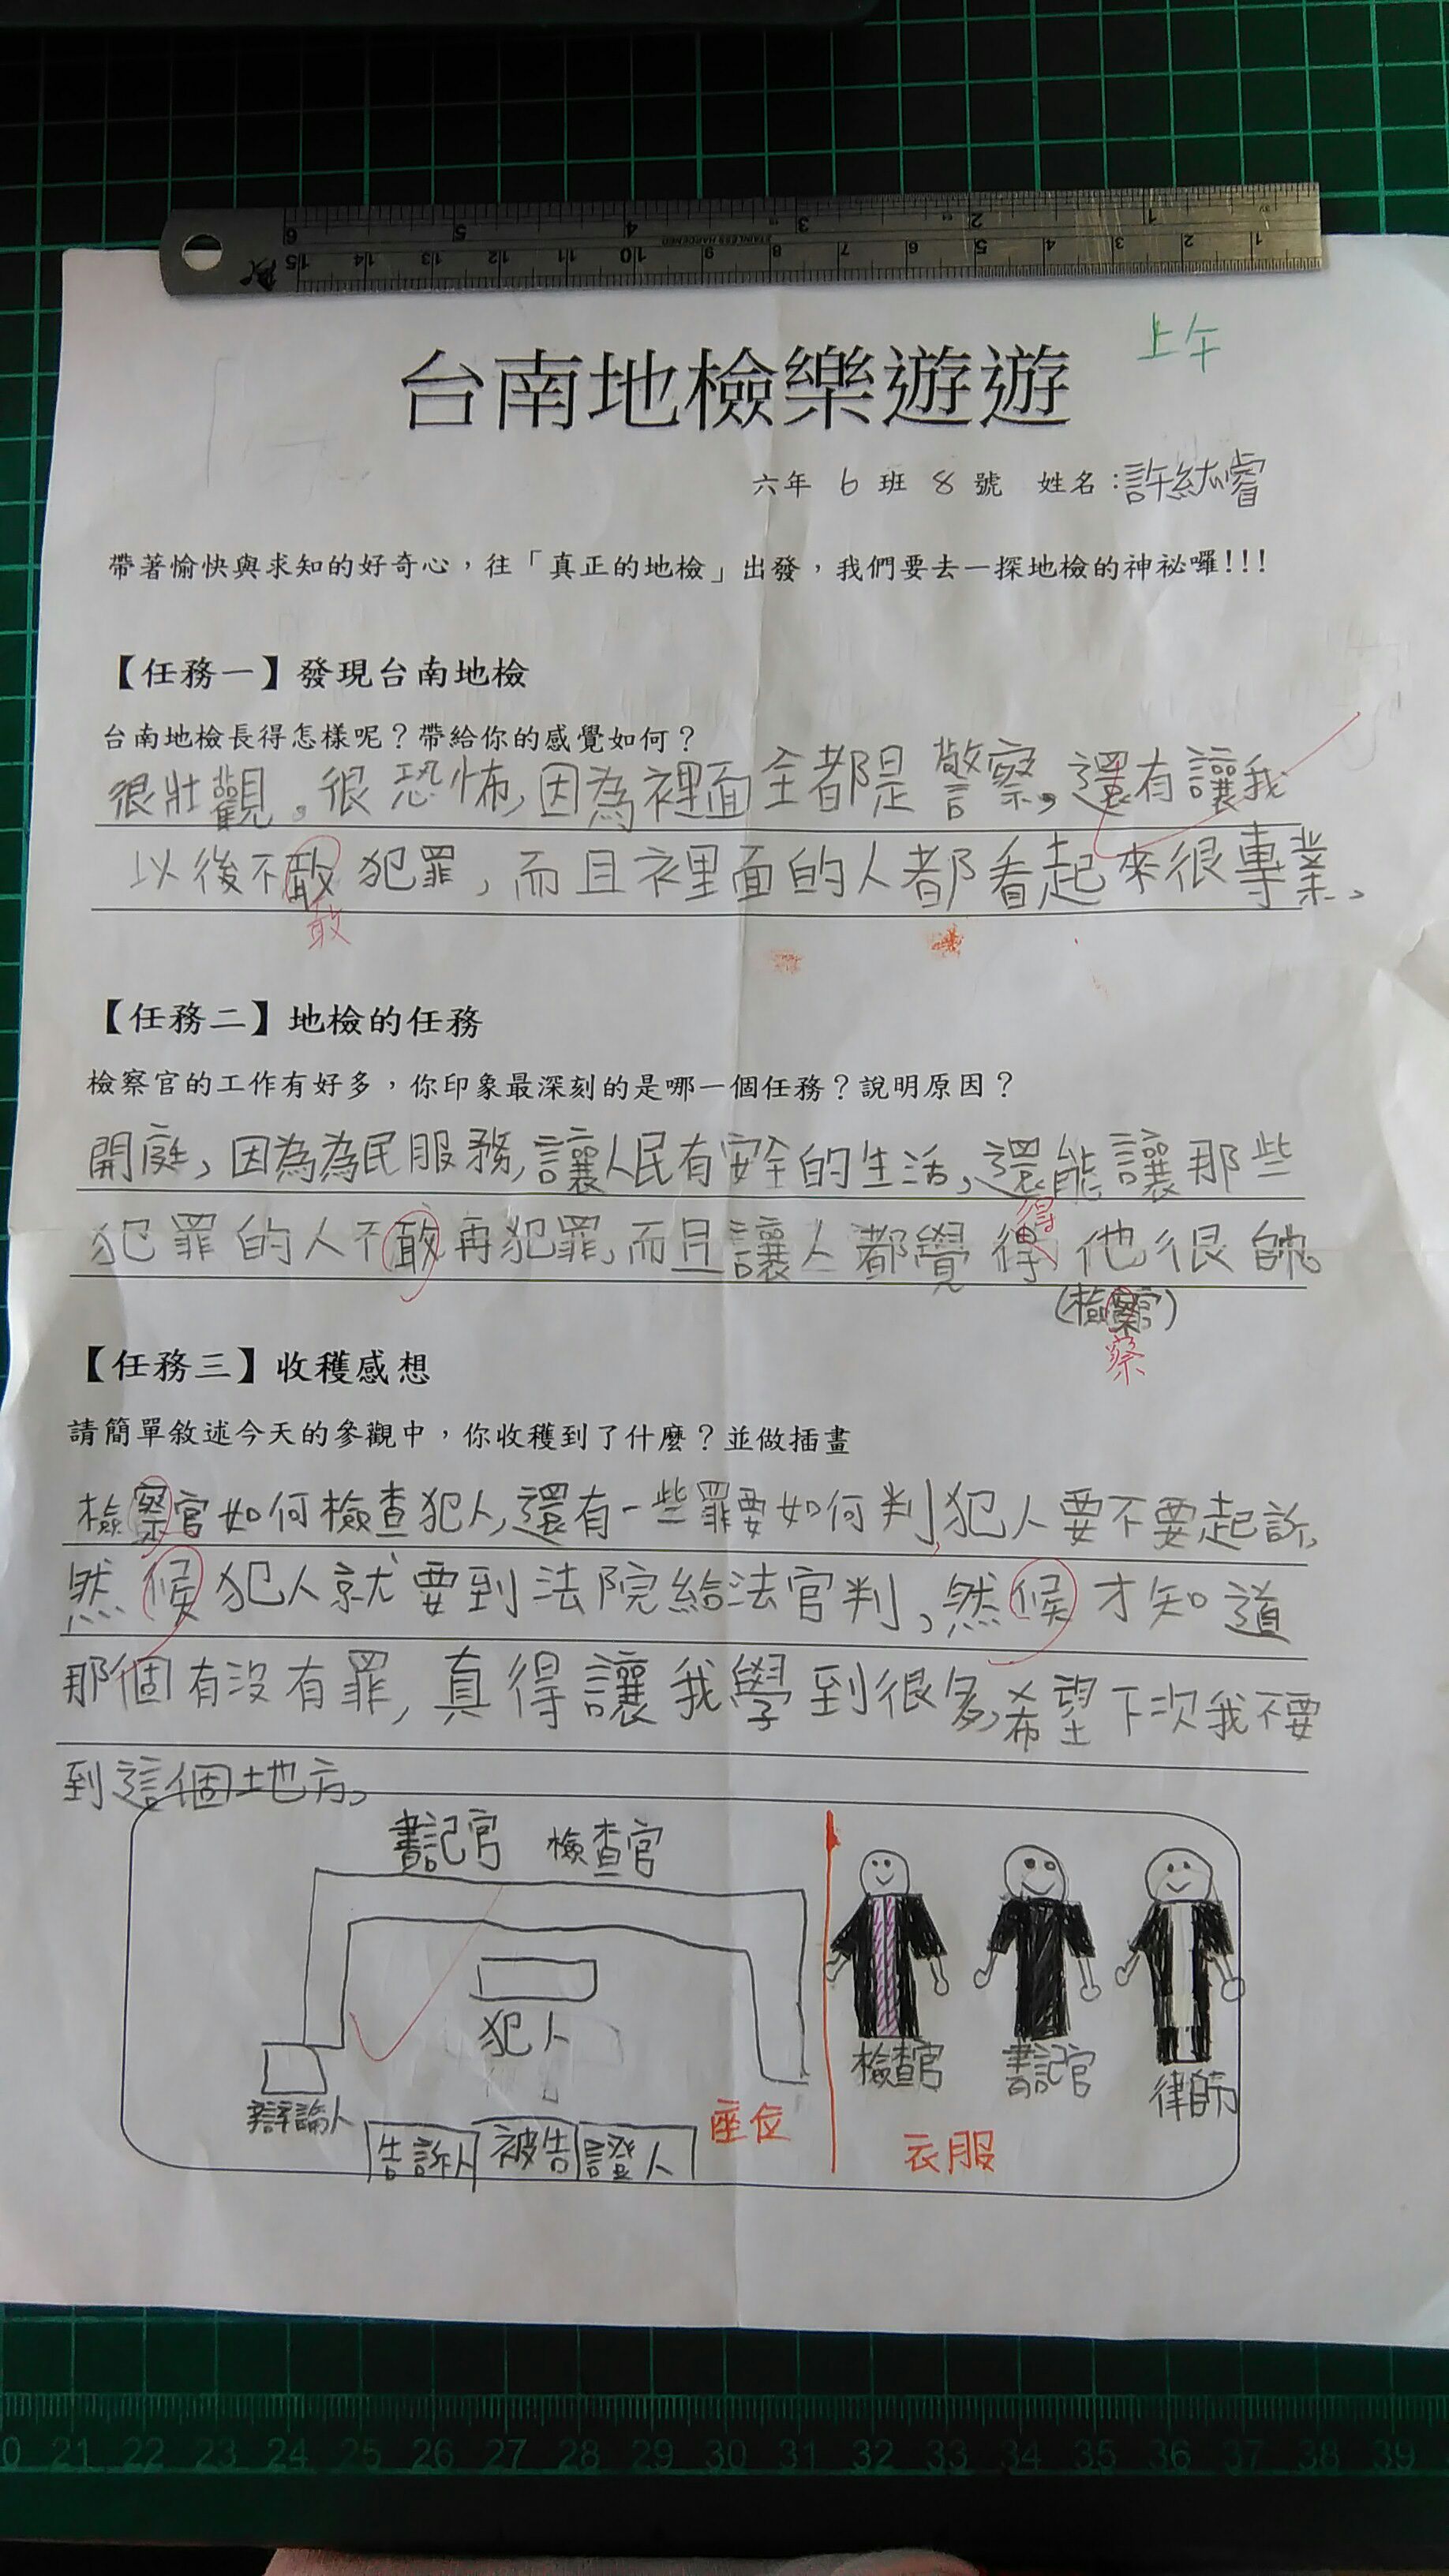 上午
台南地檢樂遊遊
六年 6 班 8 號 姓名：許紘睿
帶著愉快與求知的好奇心，往「真正的地檢」出發，我們要去一探地檢的神祕囉!!!
【任務一】發現台南地檢
台南地檢長得怎樣呢？帶給你的感覺如何？
很壯觀。很恐怖，因為裡面全都是警察，還有讓我
以後不敢犯罪，而且裡面的人都看起來很專業、
敢
【任務二】地檢的任務
檢察官的工作有好多，你印象最深刻的是哪一個任務？說明原因？
開庭，因為為民服務，讓人民有安全的生活，還能讓那些
得
犯罪的人不敢再犯罪，而且讓人都覺得他很帥。
(檢察官)
察
【任務三】收穫感想
請簡單敘述今天的參觀中，你收穫到了什麼？並做插畫
檢察官如何檢查犯人，還有一些罪要如何判，犯人要不要起訴，
然候犯人就要到法院給法官判，然候才知道
那個有沒有罪，真得讓我學到很多，希望下次我不要
到這個地方。
書記官 檢查官
犯人
辯論人
告訴人 被告 證人
座位
檢查官 書記官 律師
衣服
STAINLESS HARDENED
6 5 4 3 2 1
15 14 13 12 11 10 9 8 7 6 5 4 3 2 1
0 21 22 23 24 25 26 27 28 29 30 31 32 33 34 35 36 37 38 39